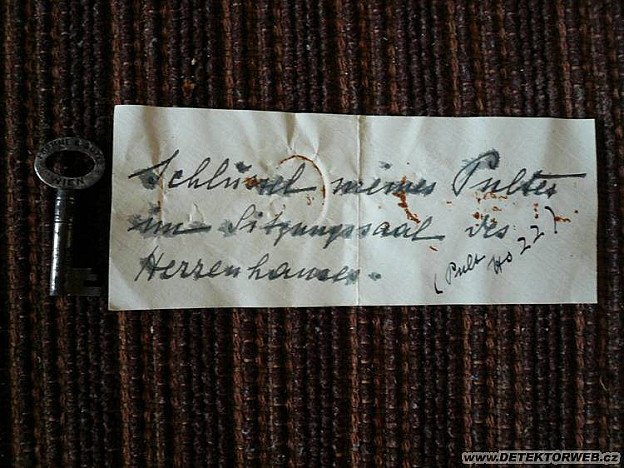 Schlüssel meines Pultes
im Sitzungssaal des
Herrenhauses.
(Pult
No 22)
WIEN
www.DETEKTORWEB.cz